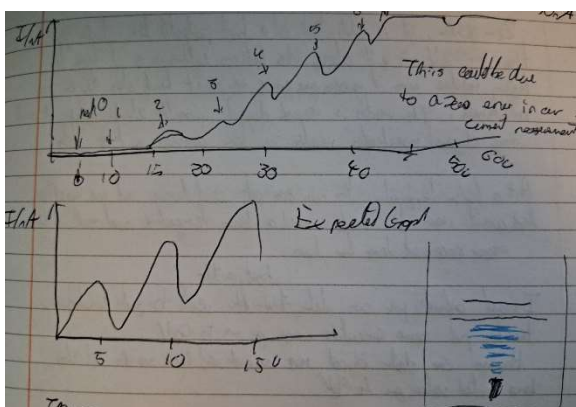 I/nA
5
4
3
2
1
0
This could be due
to a zero error in our
current measurement
10 15 20 30 40 50
I/nA
Expected Graph
5 10 15 U